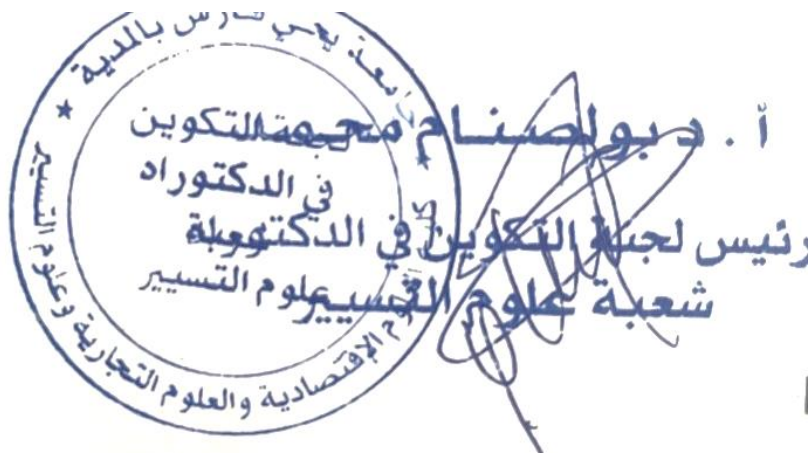 جامعة يحي فارس بالمدية
كلية العلوم الاقتصادية والعلوم التجارية وعلوم التسيير
لجنة التكوين
في الدكتوراه
شعبة
علوم التسيير
أ . د بولصنام محمد
رئيس لجنة التكوين في الدكتوراه
شعبة علوم التسيير